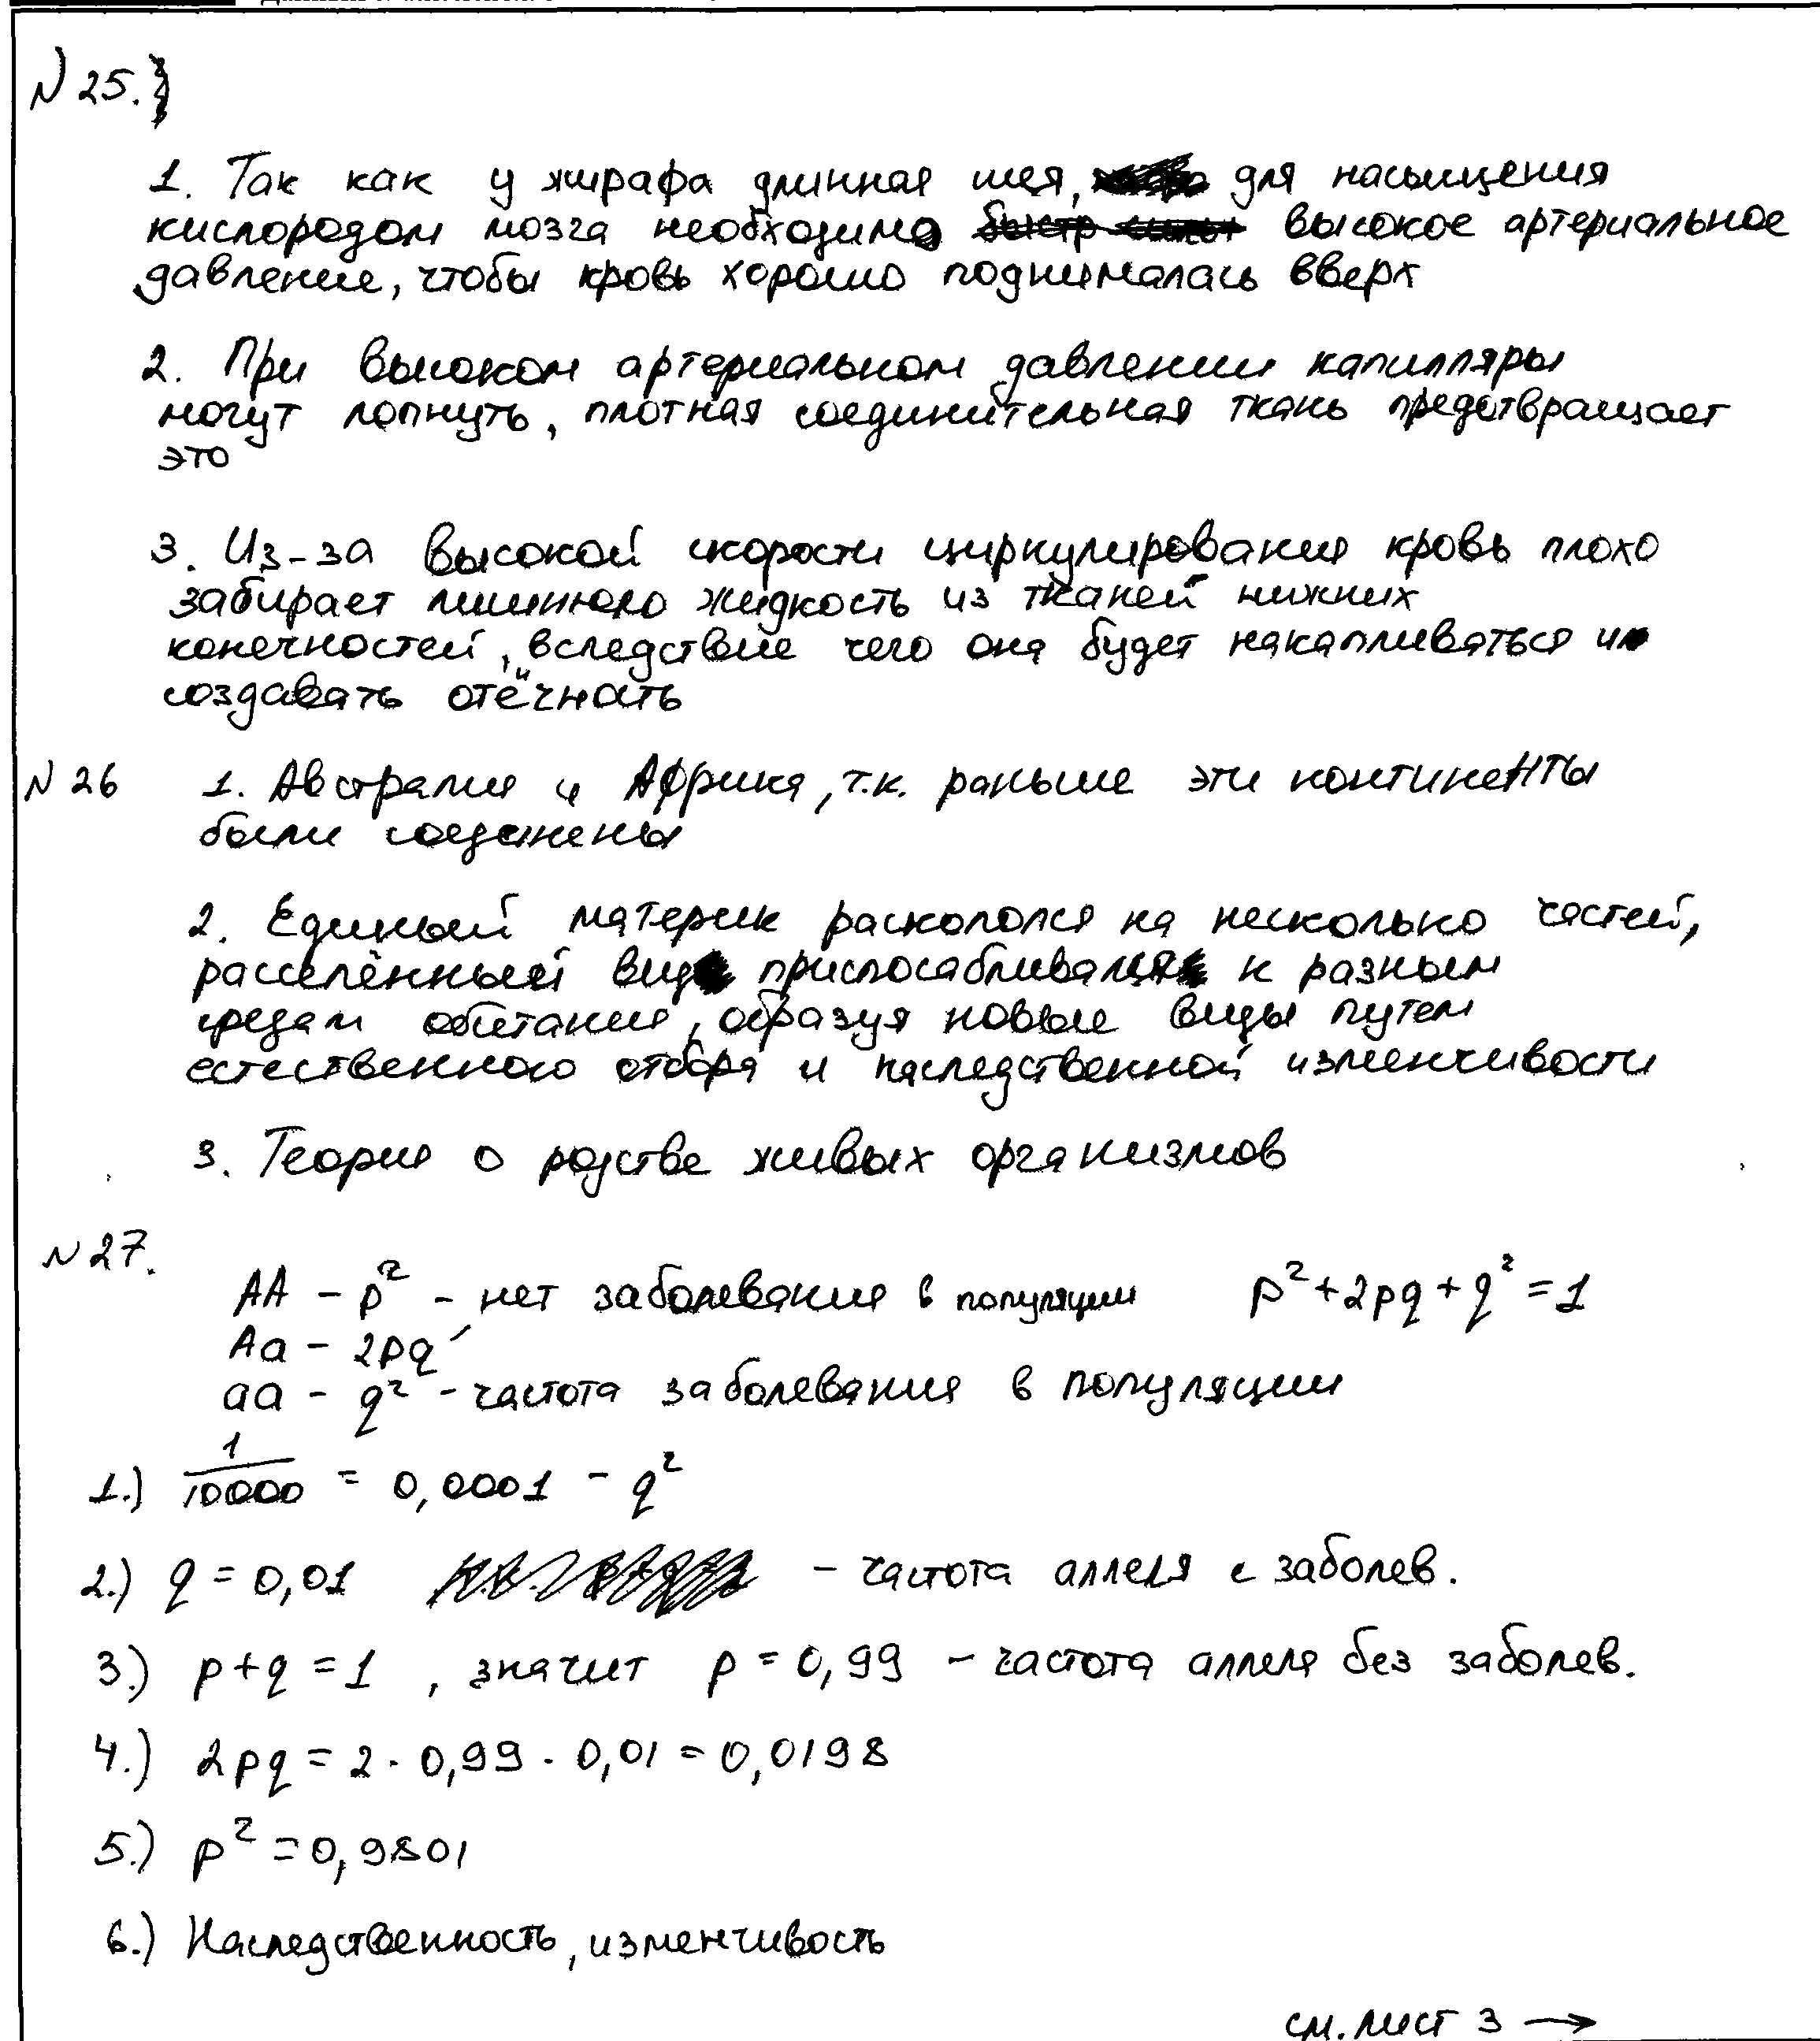 N 25.
1. Так как у жирафа длинная шея, для насыщения
кислородом мозга необходимо высокое артериальное
давление, чтобы кровь хорошо поднималась вверх
2. При высоком артериальном давлении капилляры
могут лопнуть, плотная соединительная ткань предотвращает
это
3. Из-за высокой скорости циркулирования кровь плохо
забирает лишнюю жидкость из тканей нижних
конечностей, вследствие чего она будет накапливаться и
создавать отёчность
N 26 1. Австралия и Африка, т.к. раньше эти континенты
были соединены
2. Единый материк раскололся на несколько частей,
расселённый вид приспосабливался к разным
средам обитания, образуя новые виды путем
естественного отбора и наследственной изменчивости
3. Теория о родстве живых организмов
N 27.
AA - p² - нет заболевания в популяции p² + 2pq + q² = 1
Aa - 2pq
aa - q² - частота заболевания в популяции
1.) 1/10000 = 0,0001 - q²
2.) q = 0,01 - частота аллеля с заболев.
3.) p + q = 1 , значит p = 0,99 - частота аллеля без заболев.
4.) 2pq = 2 · 0,99 · 0,01 = 0,0198
5.) p² = 0,9801
6.) Наследственность, изменчивость
см. лист 3 →